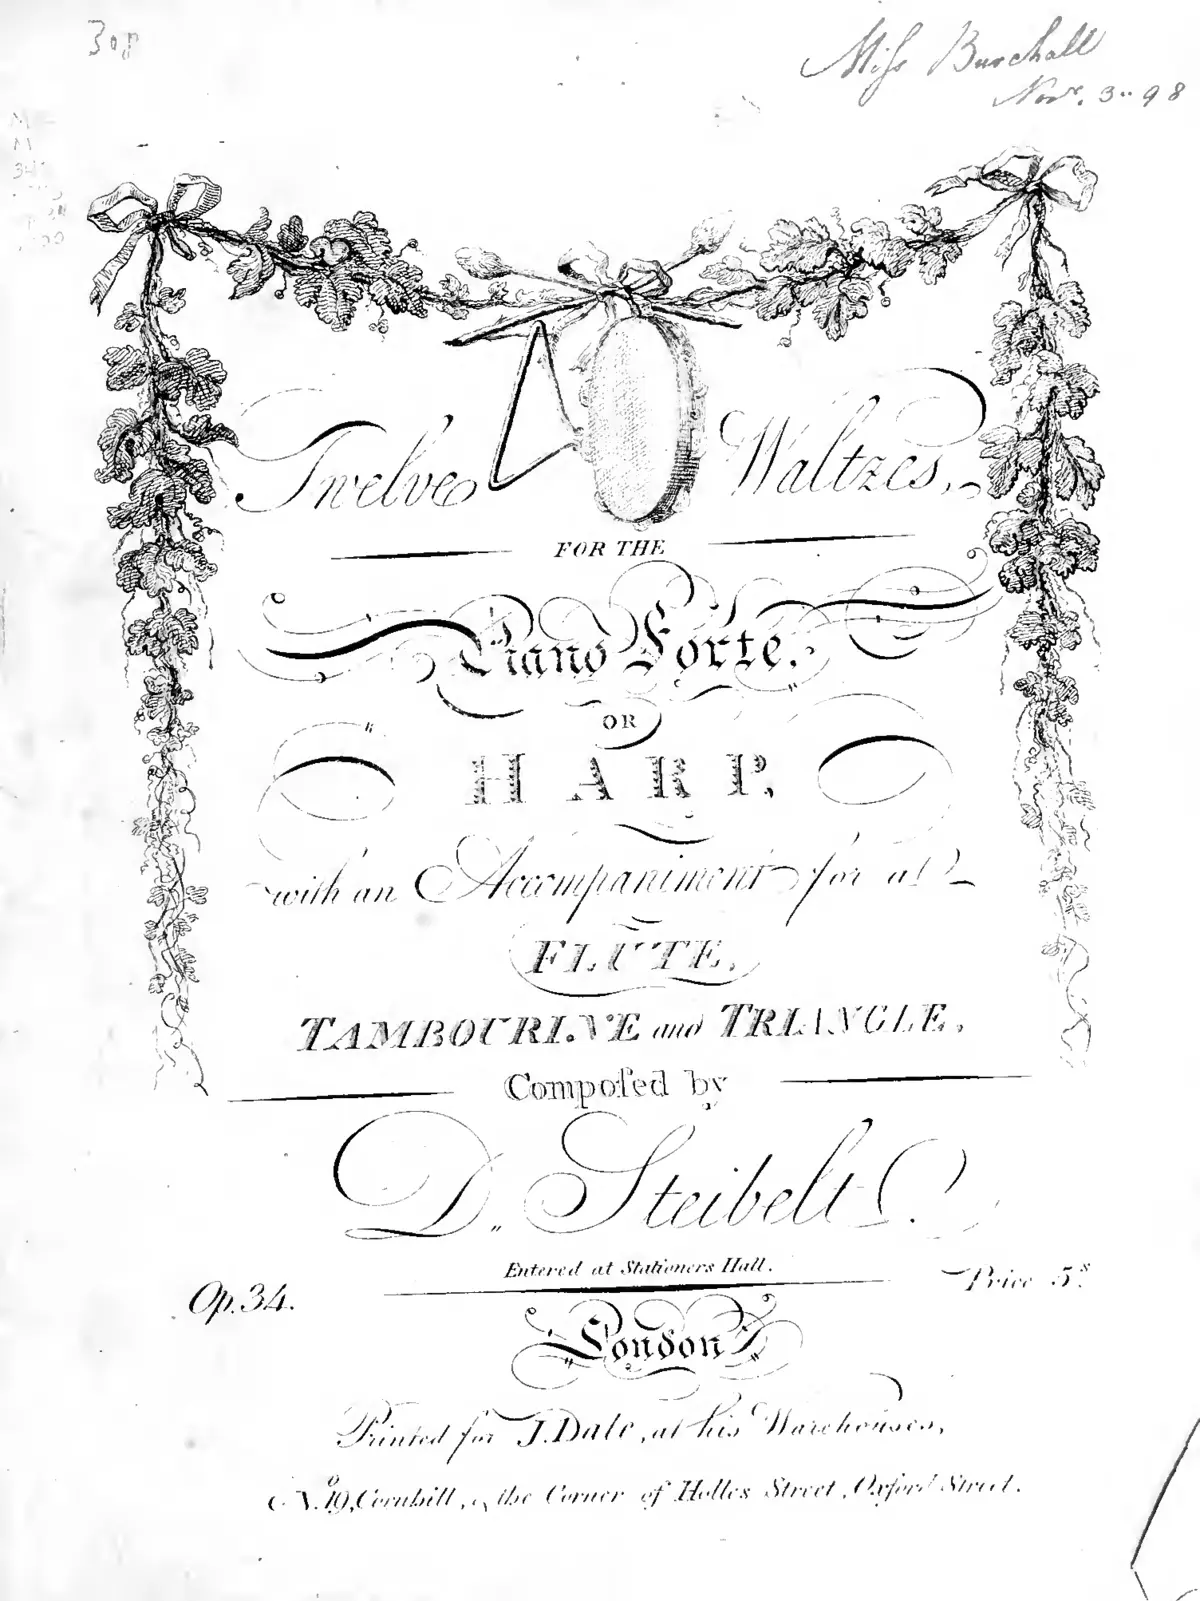 Miſs Burchall
Novr. 3.. 98
Twelve Waltzes,
FOR THE
Piano Forte,
OR
HARP,
with an Accompaniment for a
FLUTE,
TAMBOURINE and TRIANGLE,
Compoſed by
D. Steibelt.
Entered at Stationers Hall.
Op. 34.
Price 5s.
London
Printed for J. Dale, at his Warehouses,
No. 19, Cornhill, & the Corner of Holles Street, Oxford Street.